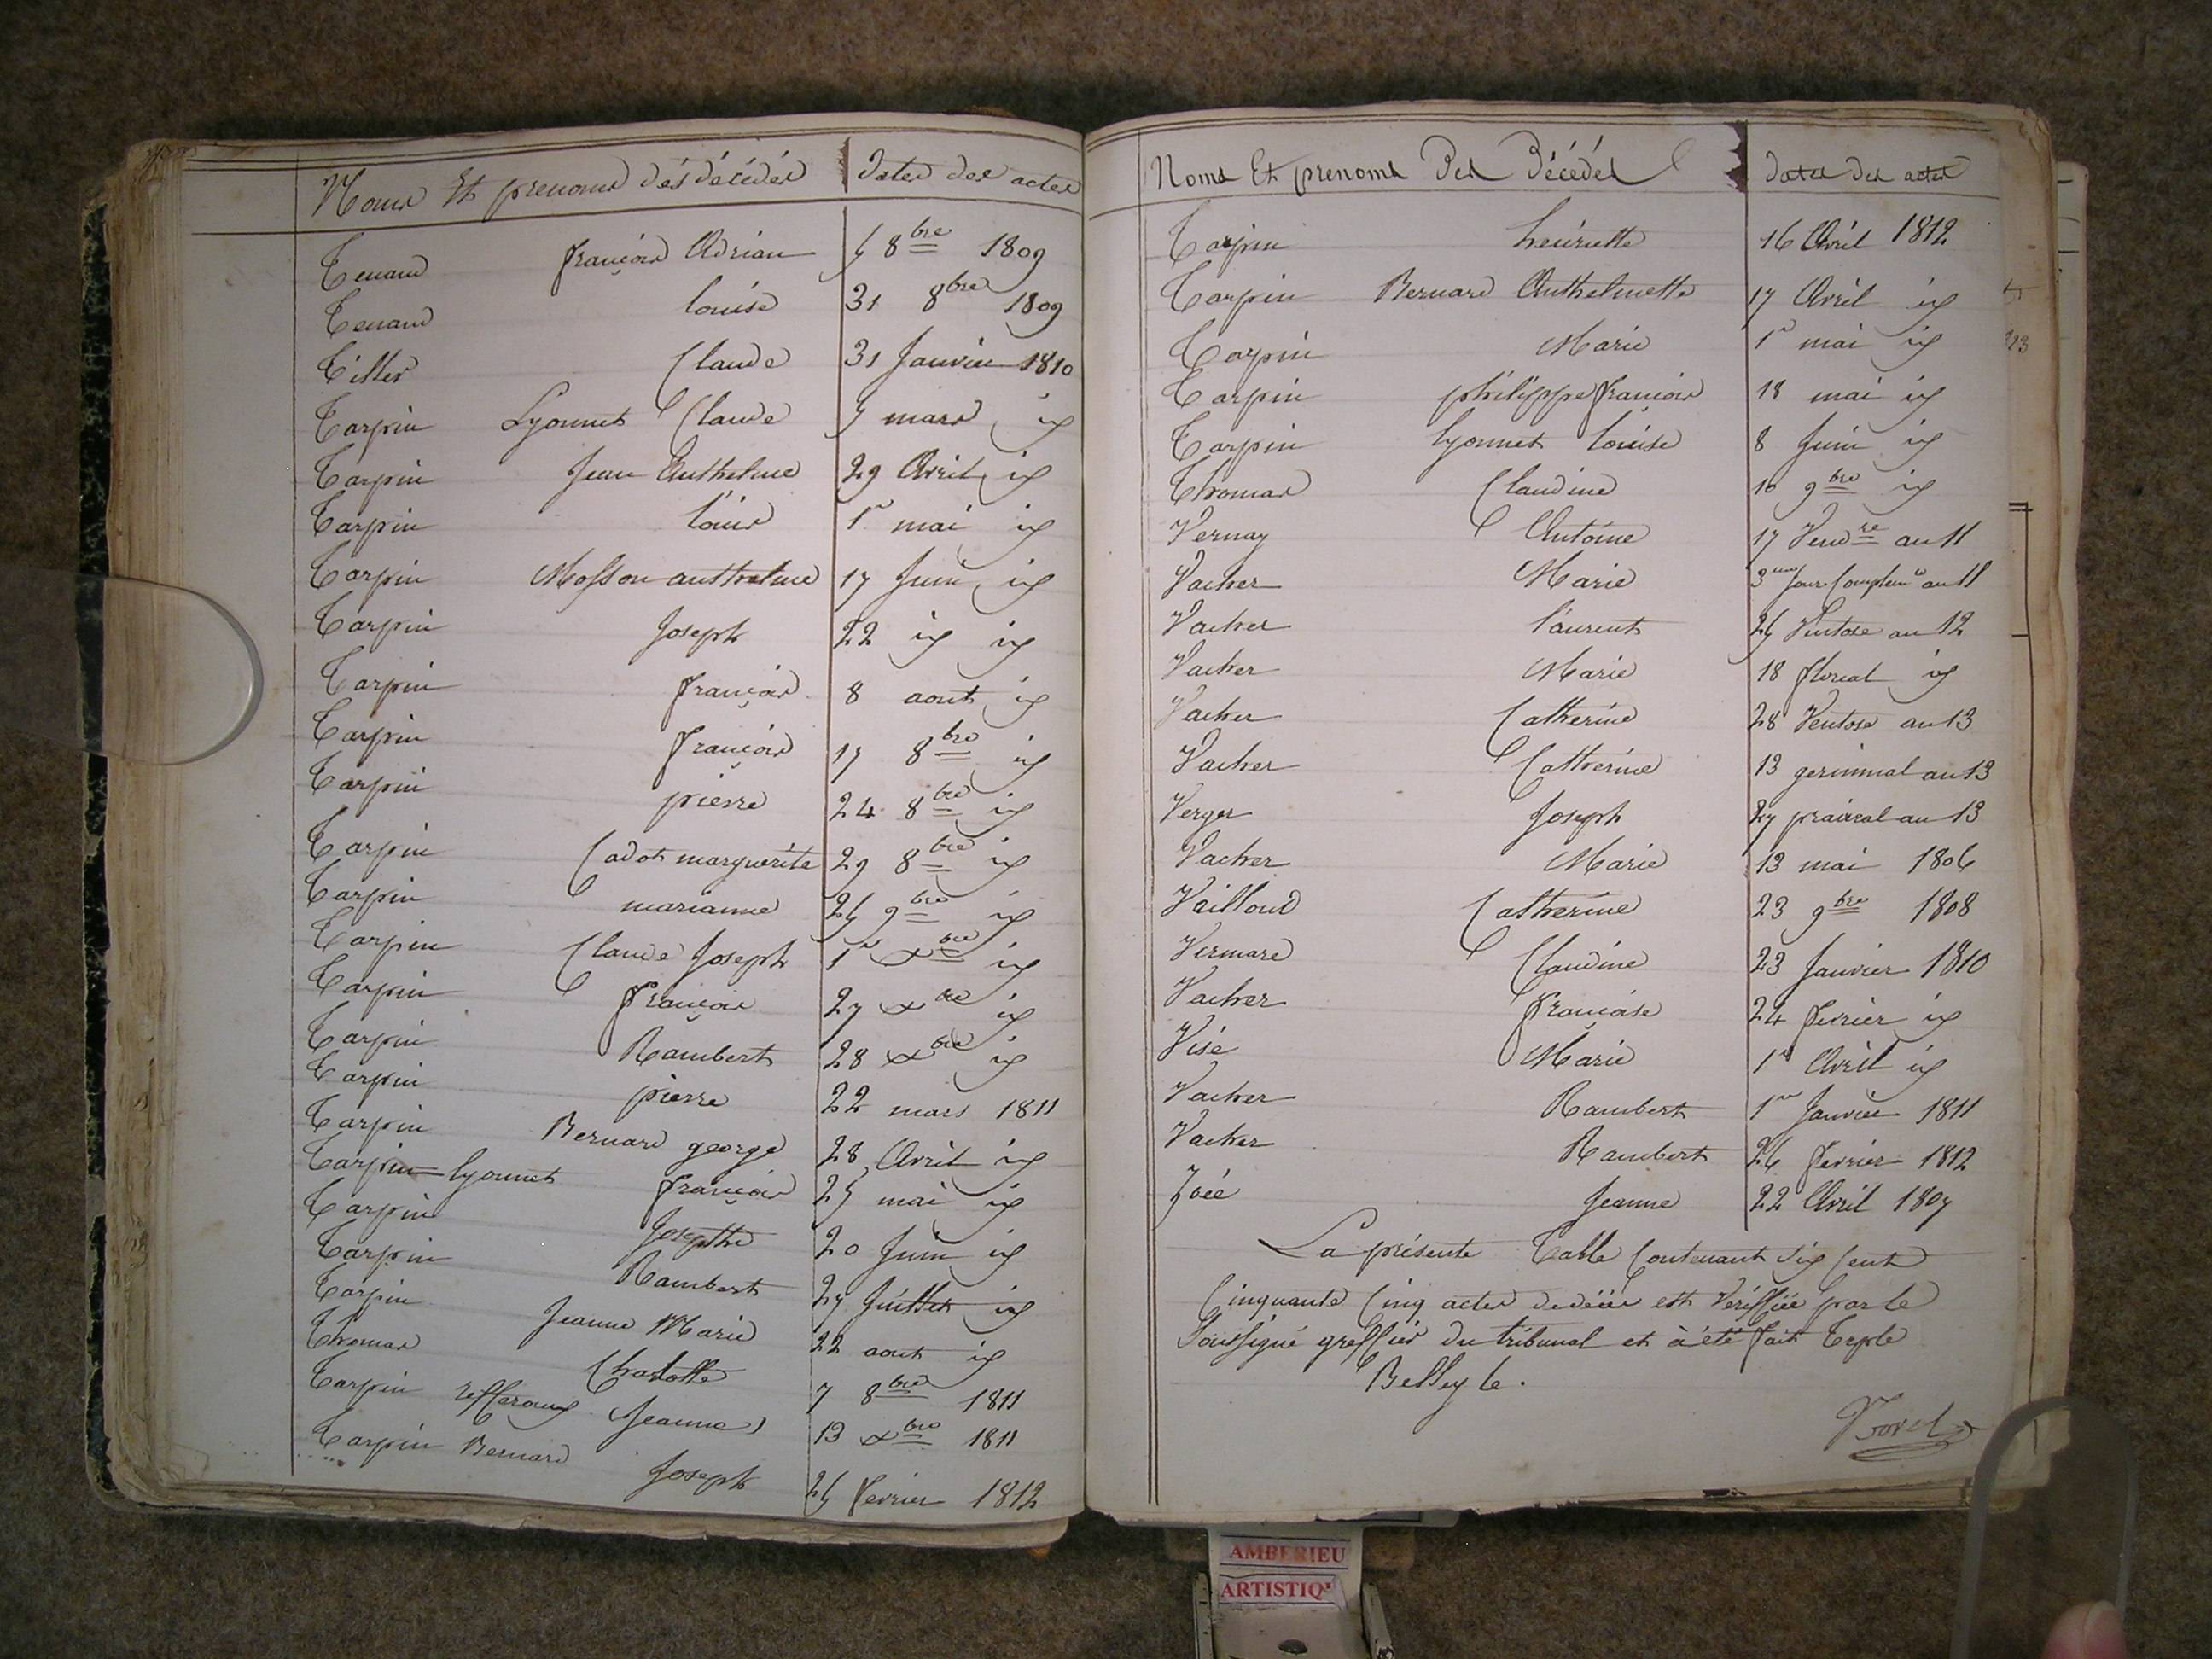 Noms Et prenoms dés décédés dates des actes
Tenand françois Adrian 5 8bre 1809
Tenand louise 31 8bre 1809
Tiller Claude 31 Janvier 1810
Tarpin Lyonnet Claude 5 mars id
Tarpin Jean Anthelme 29 Avril id
Tarpin louis 1r mai id
Tarpin Mosson anthelme 17 Juin id
Tarpin Joseph 22 id id
Tarpin françois 8 aout id
Tarpin françois 17 8bre id
Tarpin pierre 24 8bre id
Tarpin Cadot marguerite 29 8bre id
Tarpin marianne 25 9bre id
Tarpin Claude Joseph 1er xbre id
Tarpin françois 27 xbre id
Tarpin Rambert 28 xbre id
Tarpin pierre 22 mars 1811
Tarpin Bernard george 28 Avril id
Tarpin lyonnet françois 25 mai id
Tarpin Josephe 20 Juin id
Tarpin Rambert 27 Juillet id
Tarpin Jeanne Marie 22 aout id
Thomas Charlotte 7 8bre 1811
Tarpin Jeanne 13 xbre 1811
Tarpin Bernard Joseph 25 fevrier 1812
Noms Et prenoms Des Décédés dates des actes
Tarpin henriette 16 Avril 1812
Tarpin Bernard Anthelmette 17 Avril id
Tarpin Marie 1r mai id
Tarpin philippe françois 18 mai id
Tarpin lyonnet louise 8 Juin id
Thomas Claudine 10 9bre id
Vernay Antoine 17 Vendre an 11
Vacher Marie 3eme Jour Complemre an 11
Vacher laurent 25 Ventose an 12
Vacher Marie 18 floreal id
Vacher Catherine 28 Ventose an 13
Vacher Catherine 13 germinal an 13
Verger Joseph 27 prairial an 13
Vacher Marie 13 mai 1806
Vailloud Catherine 23 9bre 1808
Vermare Claudine 23 Janvier 1810
Vacher françoise 24 fevrier id
Visé Marie 1er Avril id
Vacher Rambert 1er Janvier 1811
Vacher Rambert 26 fevrier 1812
Zoée Jeanne 22 Avril 1807
La présente Table Contenant Six Cent
Cinquante Cinq actes de décès est Vérifiée par le
Soussigné greffier du tribunal et à été fait
Belley le.
AMBERIEU
ARTISTIQ